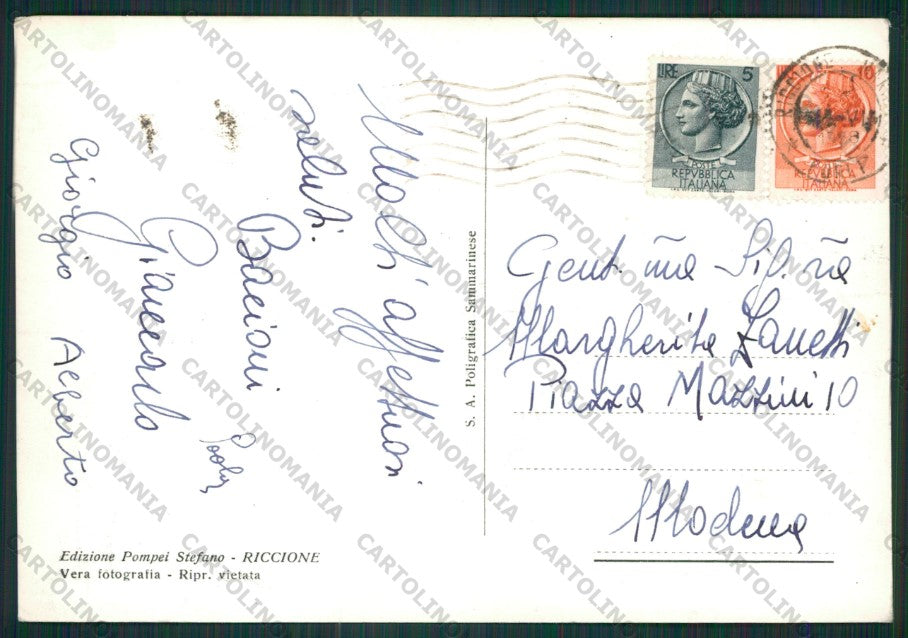 Molti affettuosi
saluti.
Bacioni
Giancarlo
Giorgio Alberto
S. A. Poligrafica Sammarinese
Edizione Pompei Stefano - RICCIONE
Vera fotografia - Ripr. vietata
LIRE 5
POSTE
REPVBBLICA
ITALIANA
10
REPVBBLICA
ITALIANA
RICCIONE
Gent.ma Sig.na
Margherita Zanetti
Piazza Mazzini 10
Modena
CARTOLINOMANIA